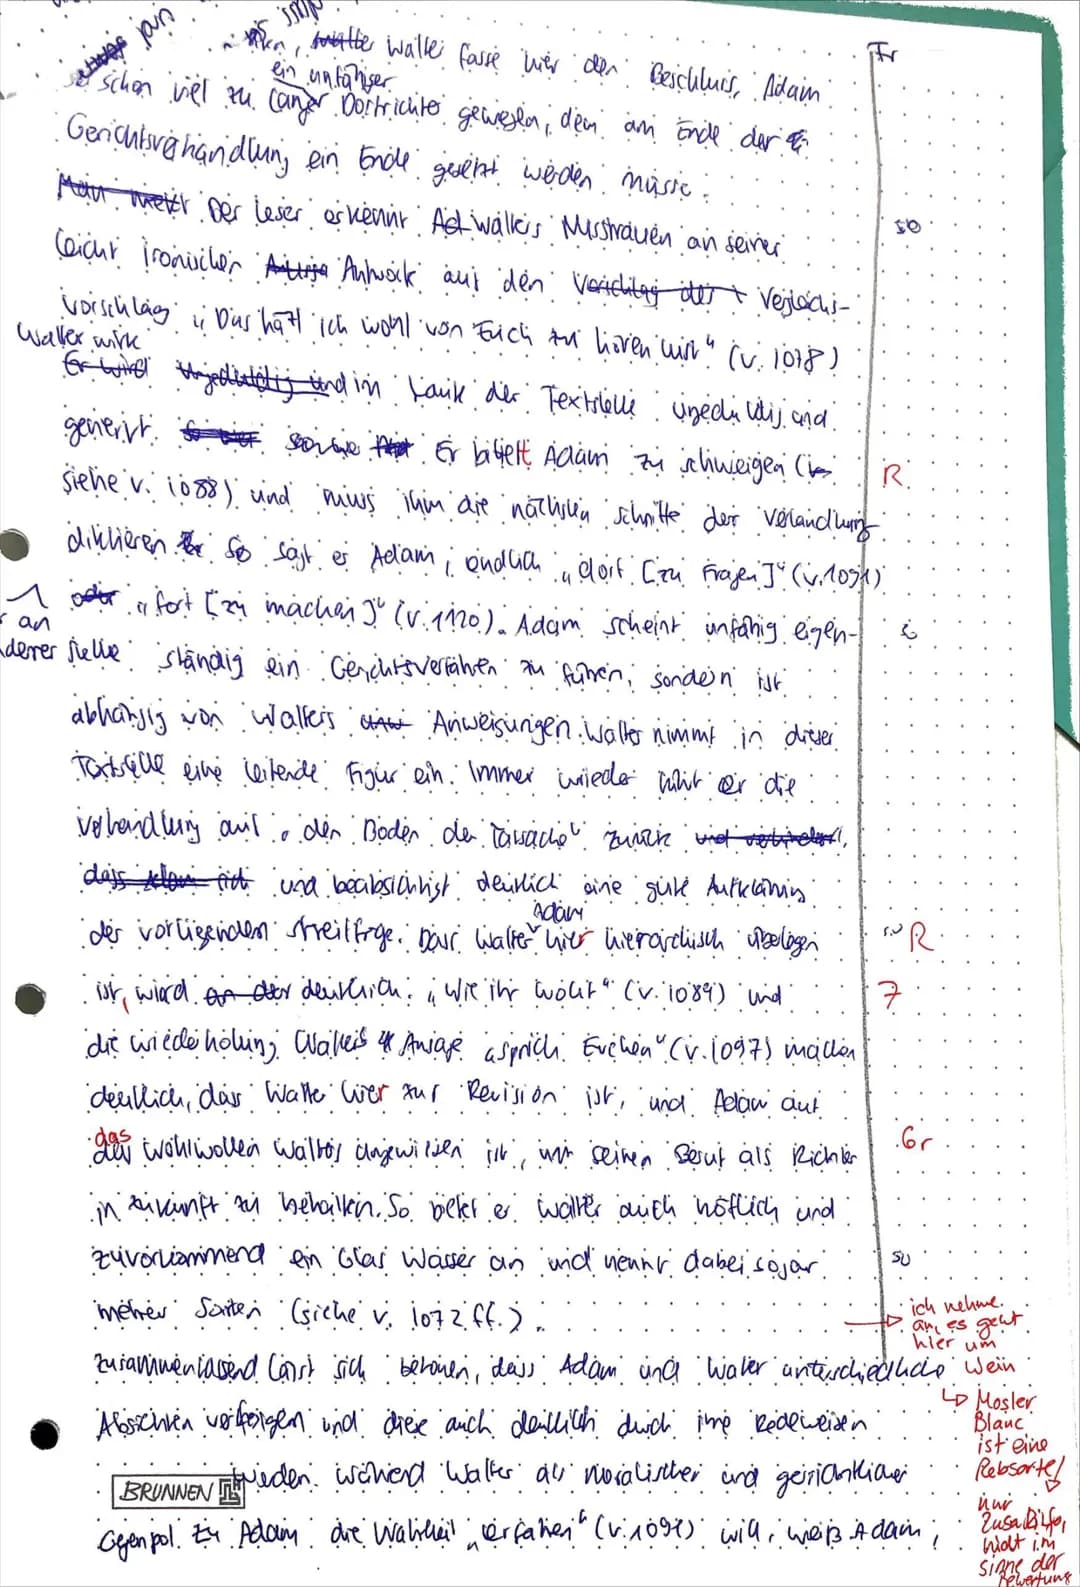 Walter fasse hier den Beschluss, Adam
ein unfähiger
schon viel zu langer Dorfrichter gewesen, dem am Ende der
Gerichtsverhandlung ein Ende gesetzt werden müsse.
Der Leser erkennt Walters Misstrauen an seiner
leicht ironischen Antwort auf den Vergleichs-
vorschlag „Das hätt ich wohl von Euch zu hören Lust" (V. 1078)
Walter wirk
im Laufe der Textstelle ungeduldig und
genervt. Er bittett Adam zu schweigen (
siehe V. 1088) und muss ihm die nächsten Schritte der Verhandlung
diktieren So sagt er Adam, endlich „dort [zu Fragen]" (V. 1091)
„fort [zu machen]" (V. 1120). Adam scheint unfähig eigen-
an
derer Stelle ständig ein Gerichtsverfahren zu führen, sondern ist
abhängig von Walters Anweisungen. Walter nimmt in dieser
Textstelle eine leitende Figur ein. Immer wieder führt er die
Verhandlung auf „den Boden der Tatsache" zurück
und beabsichtigt deutlich eine gute Aufklärung
Adam
der vorliegenden Streitfrage. Dass Walter hier hierarchisch überlegen
ist, wird deutlich. „Wie ihr wollt" (V. 1089) und
die Wiederholung Walters Ansage „sprich Evchen" (V. 1097) machen
deutlich, das Walter hier zur Revision ist, und Adam auf
das
Wohlwollen Walters angewiesen ist, um seinen Beruf als Richter
in Zukunft zu behalten. So bietet er Walter auch höflich und
zuvorkommend ein Glas Wasser an und nennt dabei sogar
mehrer Sorten (siehe V. 1072 ff.).
Zusammenfassend lässt sich betonen, dass Adam und Walter unterschiedliche
Absichten verfolgen und diese auch deutlich durch ihre Redeweisen
werden. Während Walter als moralischer und gerichtlicher
BRUNNEN
Gegenpol zu Adam die Wahrheit „erfahren" (V. 1092) will, weiß Adam,
Fr
so
R
R
7
Gr
so
ich nehme
an, es geht
hier um
Wein
Mosler
Blanc
ist eine
Rebsorte!
nur
Zusatzinfo,
nicht im
Sinne der
Bewertung